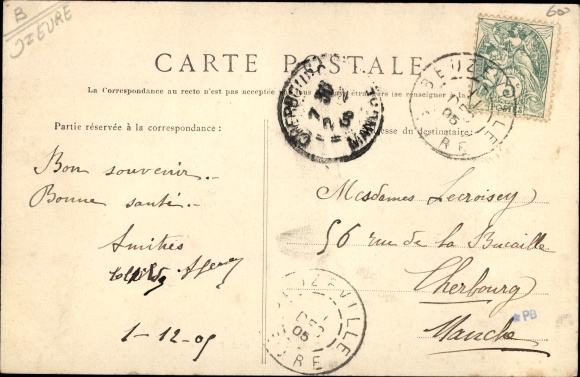 B
J=EURE
600
CARTE POSTALE
La Correspondance au recto n'est pas acceptée
étrangers (se renseigner à la
Partie réservée à la correspondance:
esse du destinataire:
BEUZEVILLE
DEC
05
EURE
CHERBOURG
7
2
MANCHE
5
POSTES
Bon souvenir.-
Bonne santé.-
Amitiés
1-12-05
Mesdames Lecroisey
56 rue de la Bucaille
Cherbourg
Manche
*PB
BEUZEVILLE
DEC
05
EURE